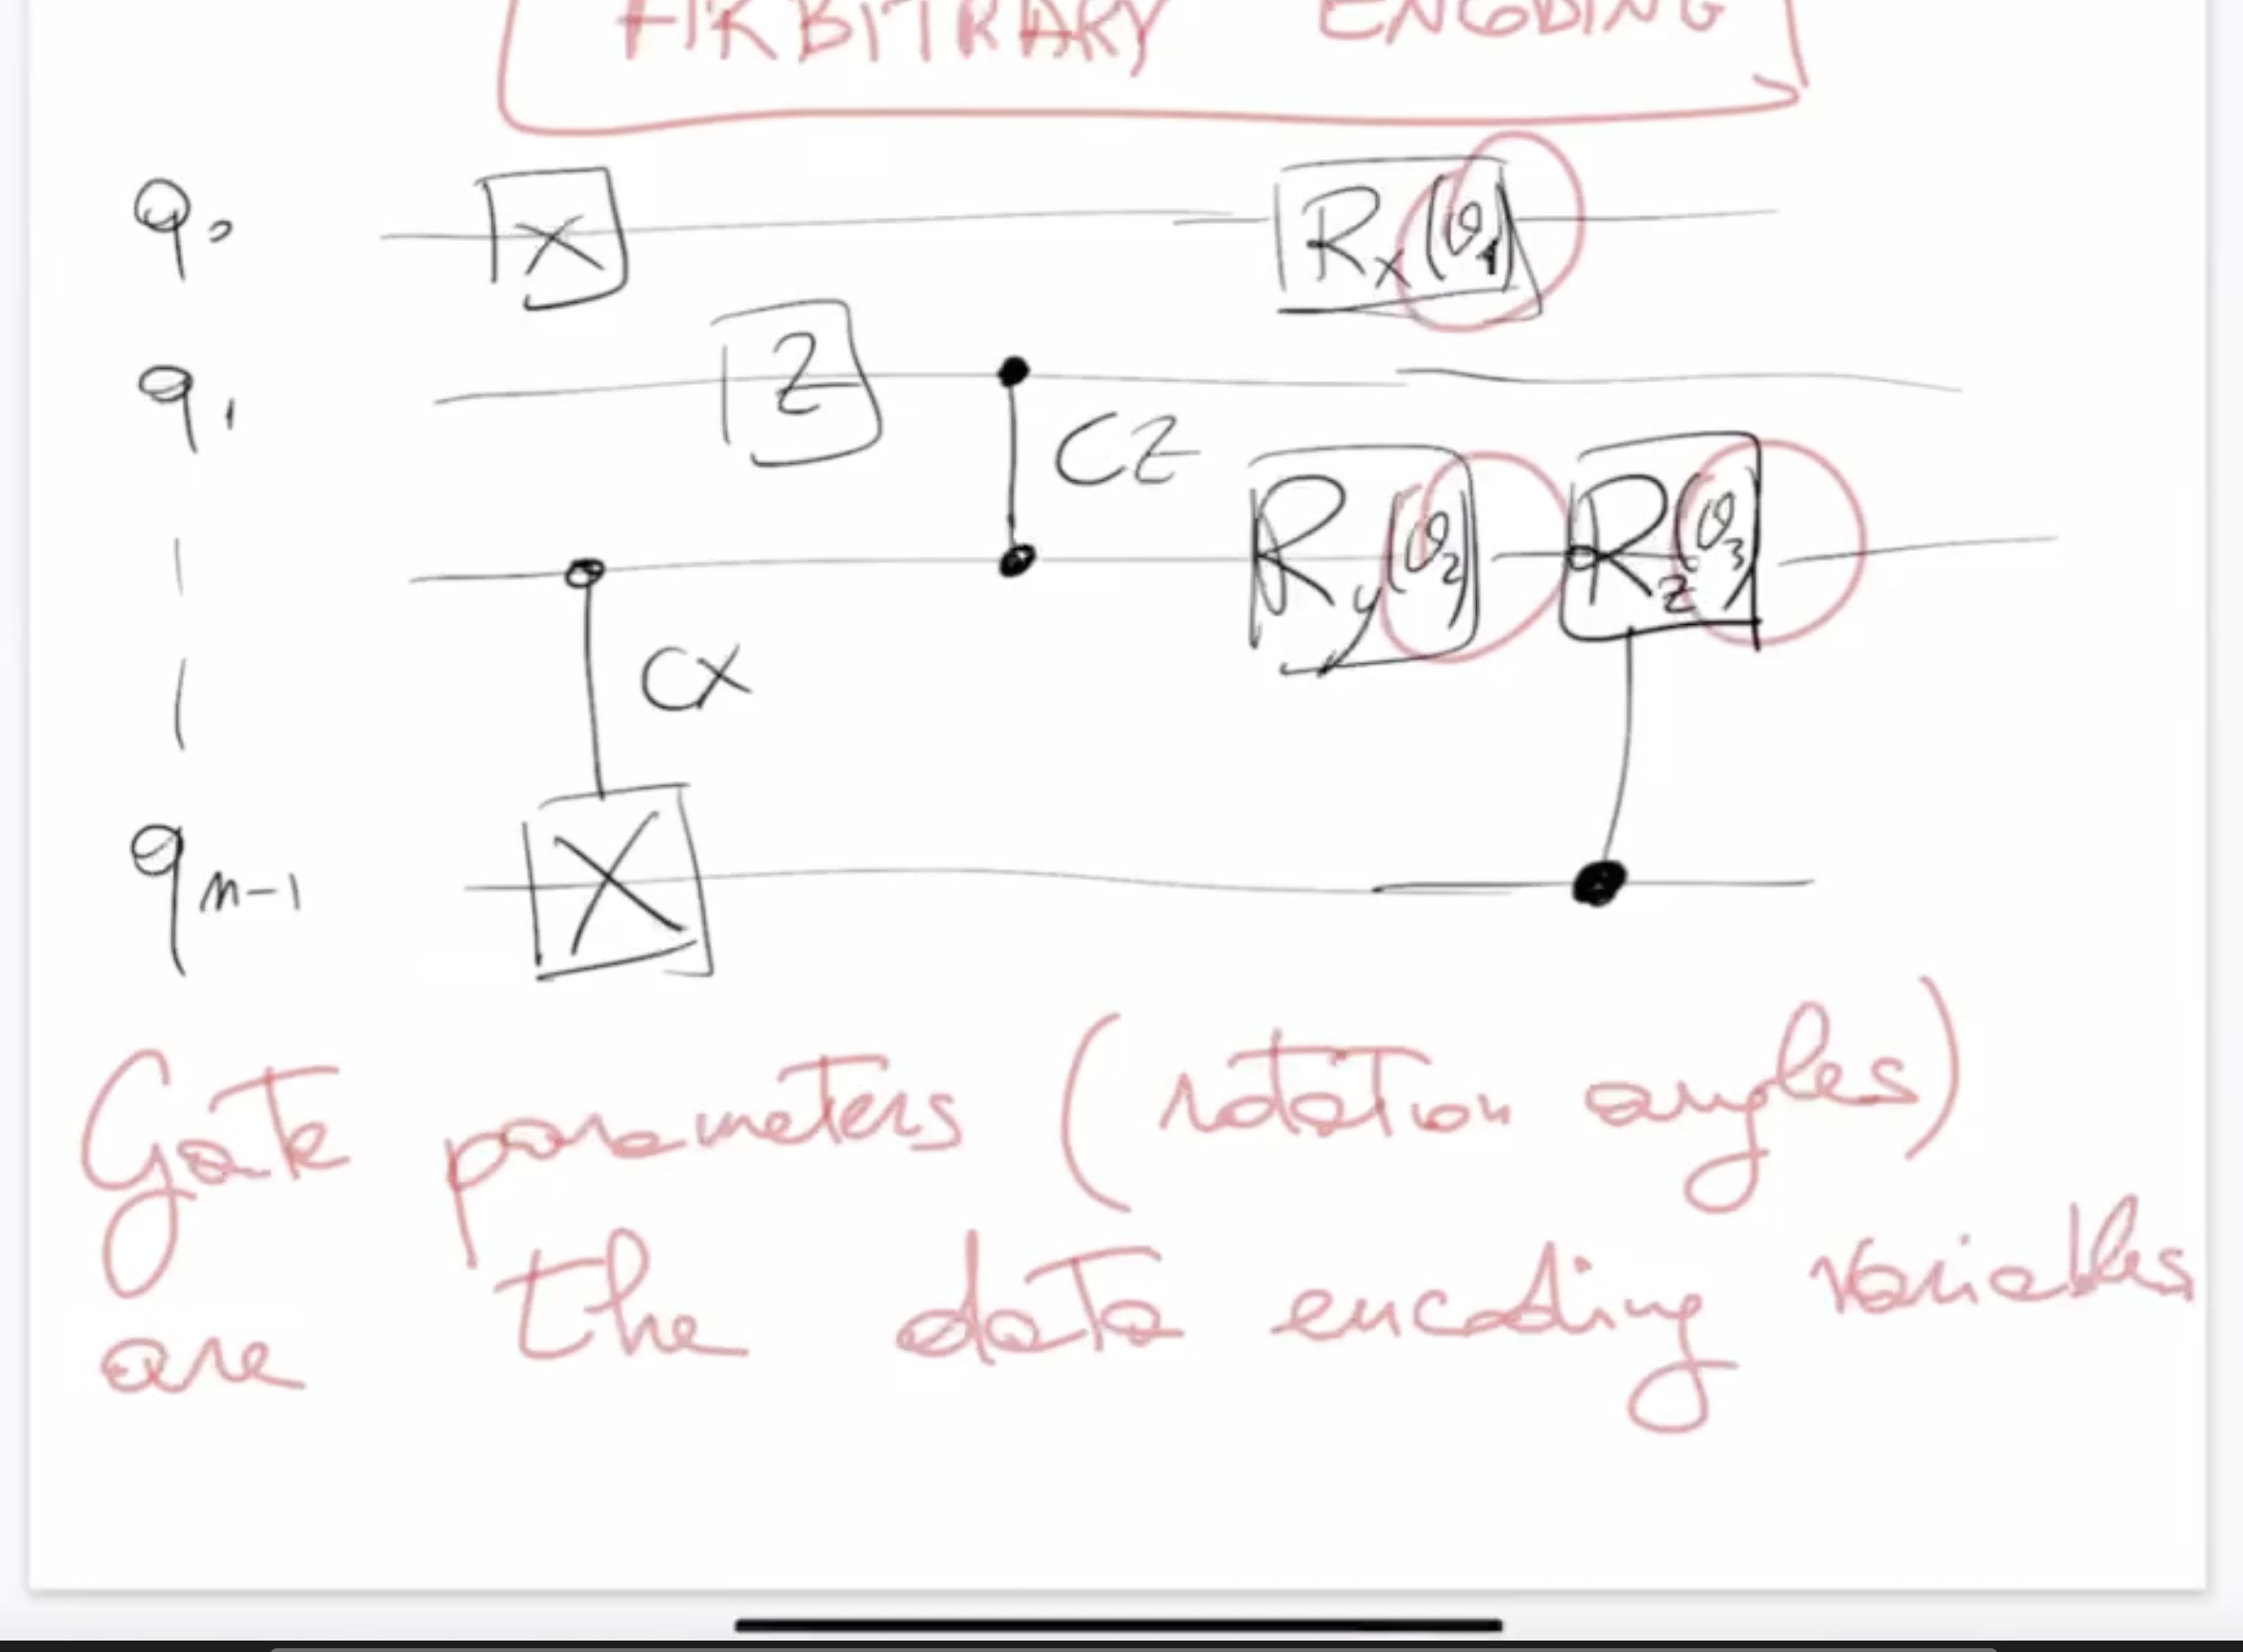 ARBITRARY ENCODING
q0 X Rx(θ1)
q1 Z
CZ
Ry(θ2) Rz(θ3)
CX
qn-1 X
Gate parameters (rotation angles)
are the data encoding variables